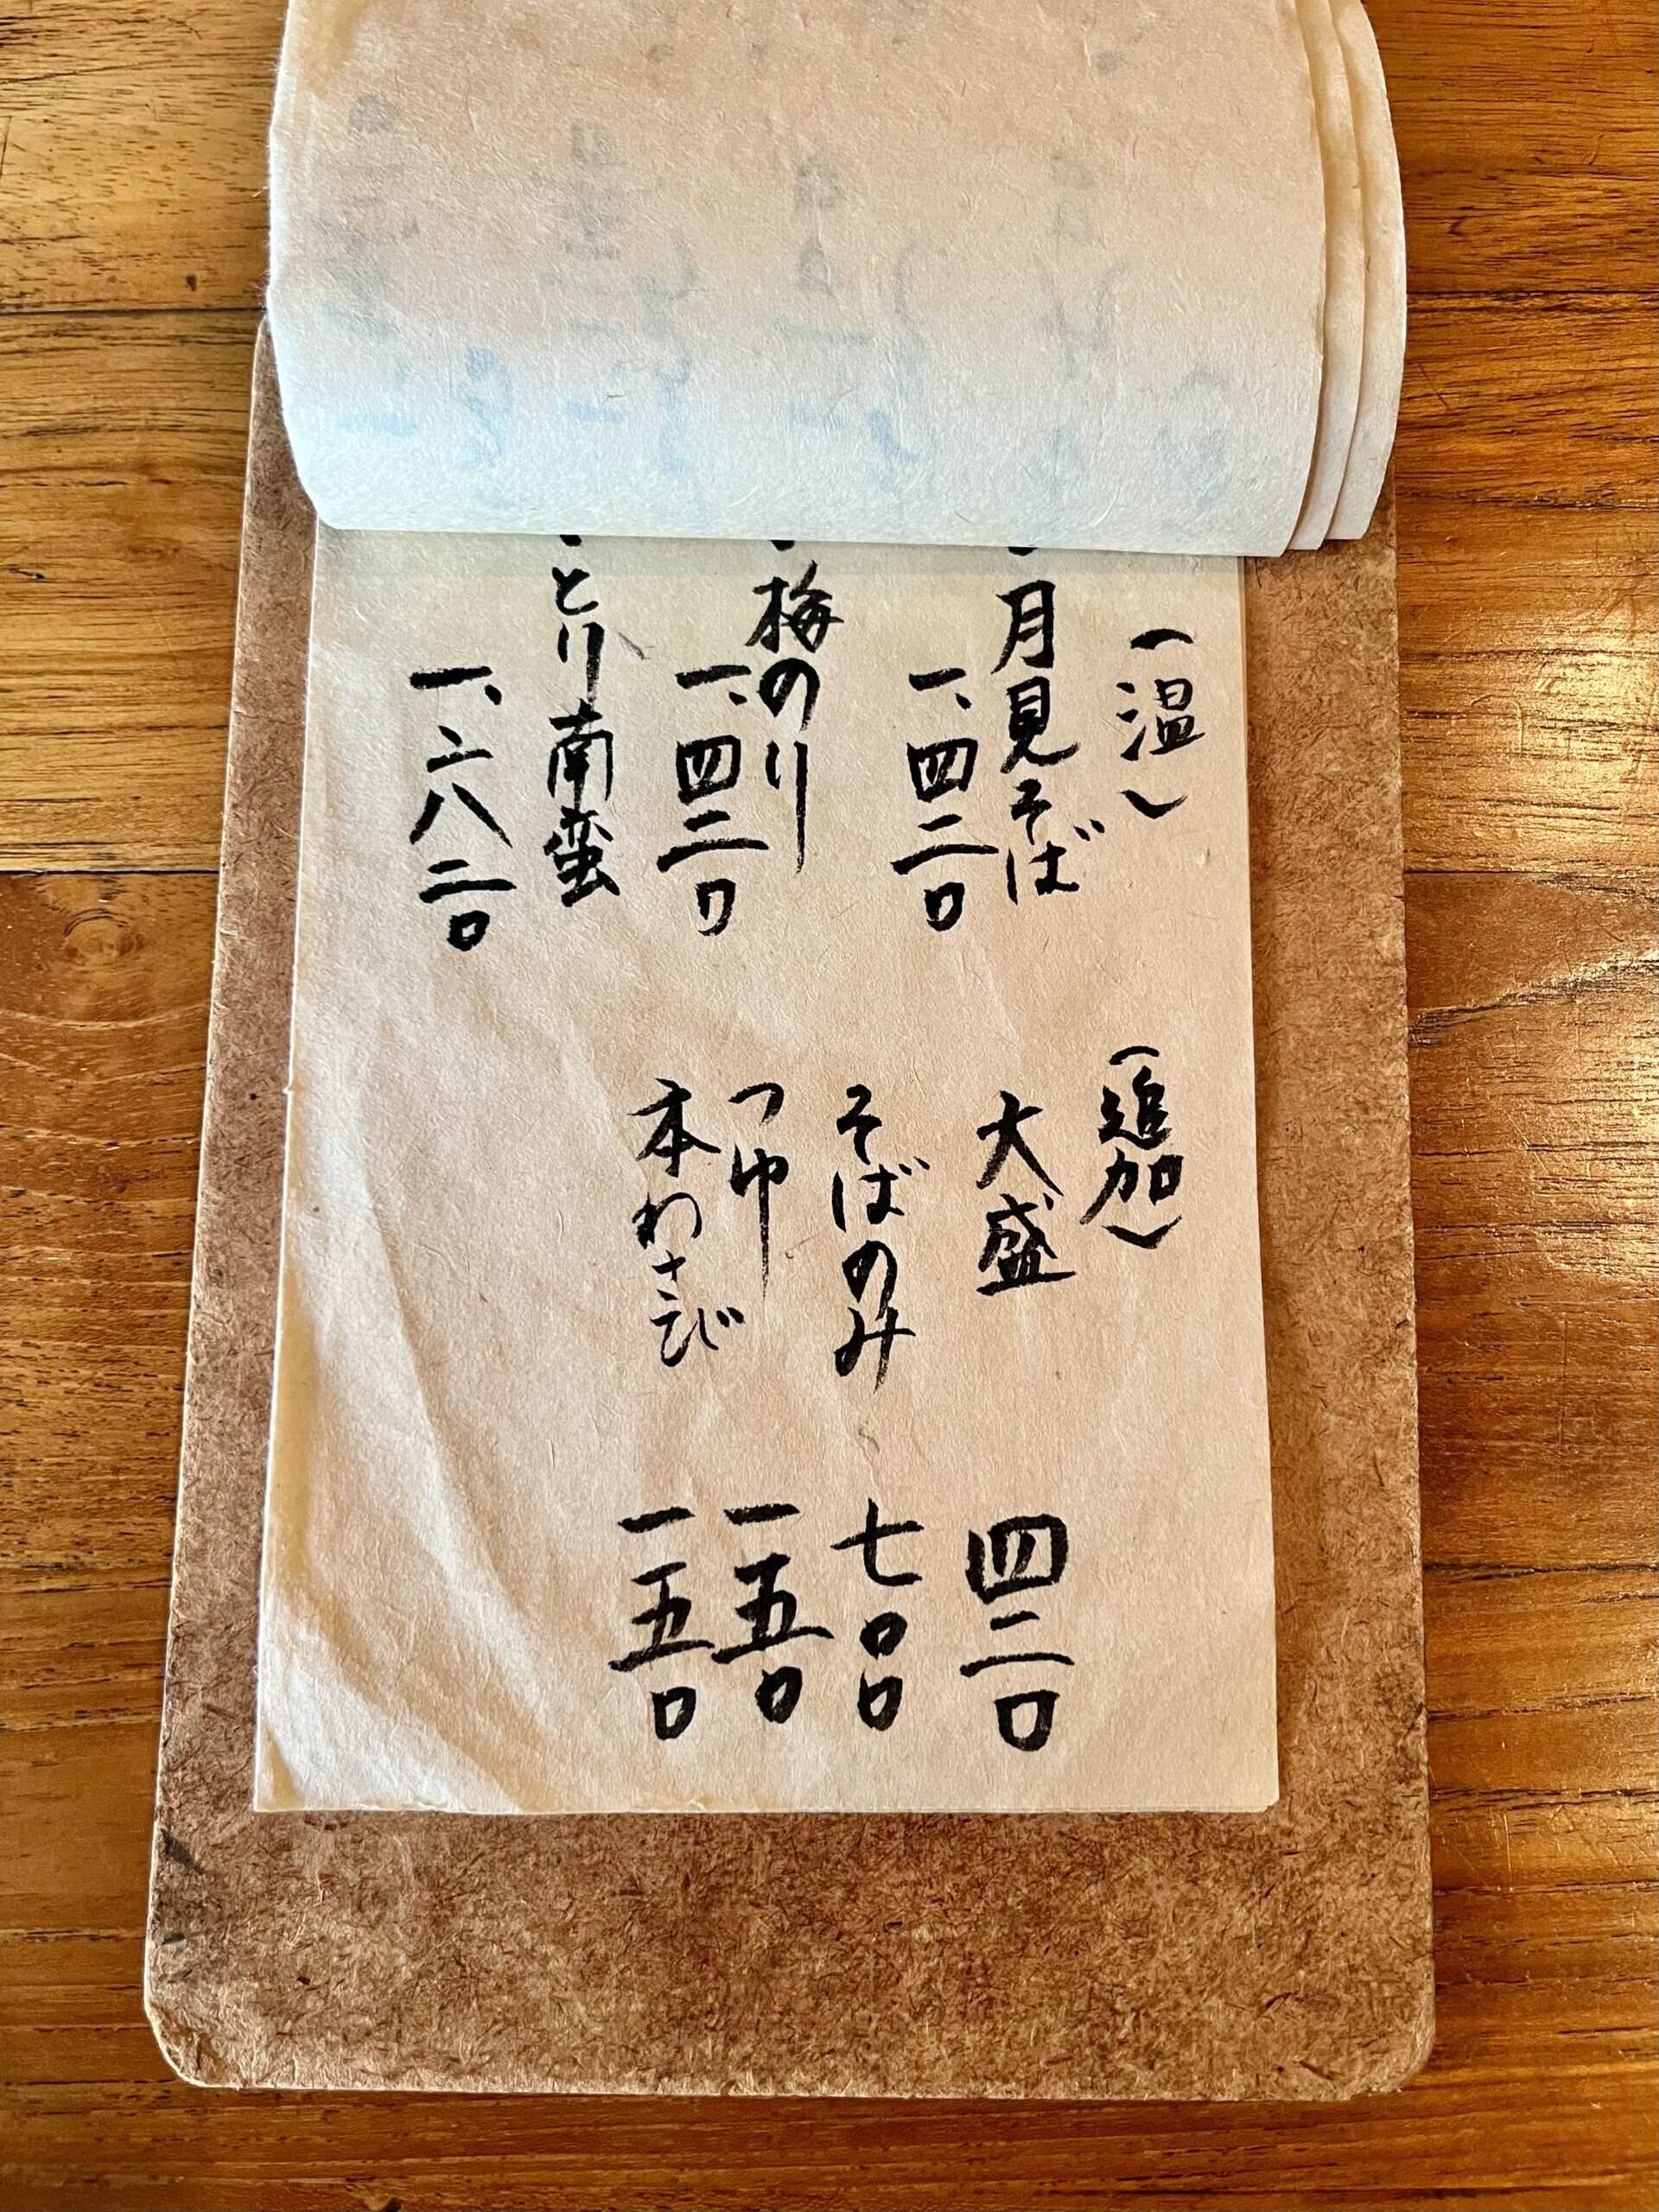 (温)
・月見そば
一、四二〇
・梅のり
一、四二〇
・とり南蛮
一、六二〇
(追加)
大盛 四二〇
そばのみ 七〇〇
つゆ 一五〇
本わさび 一五〇